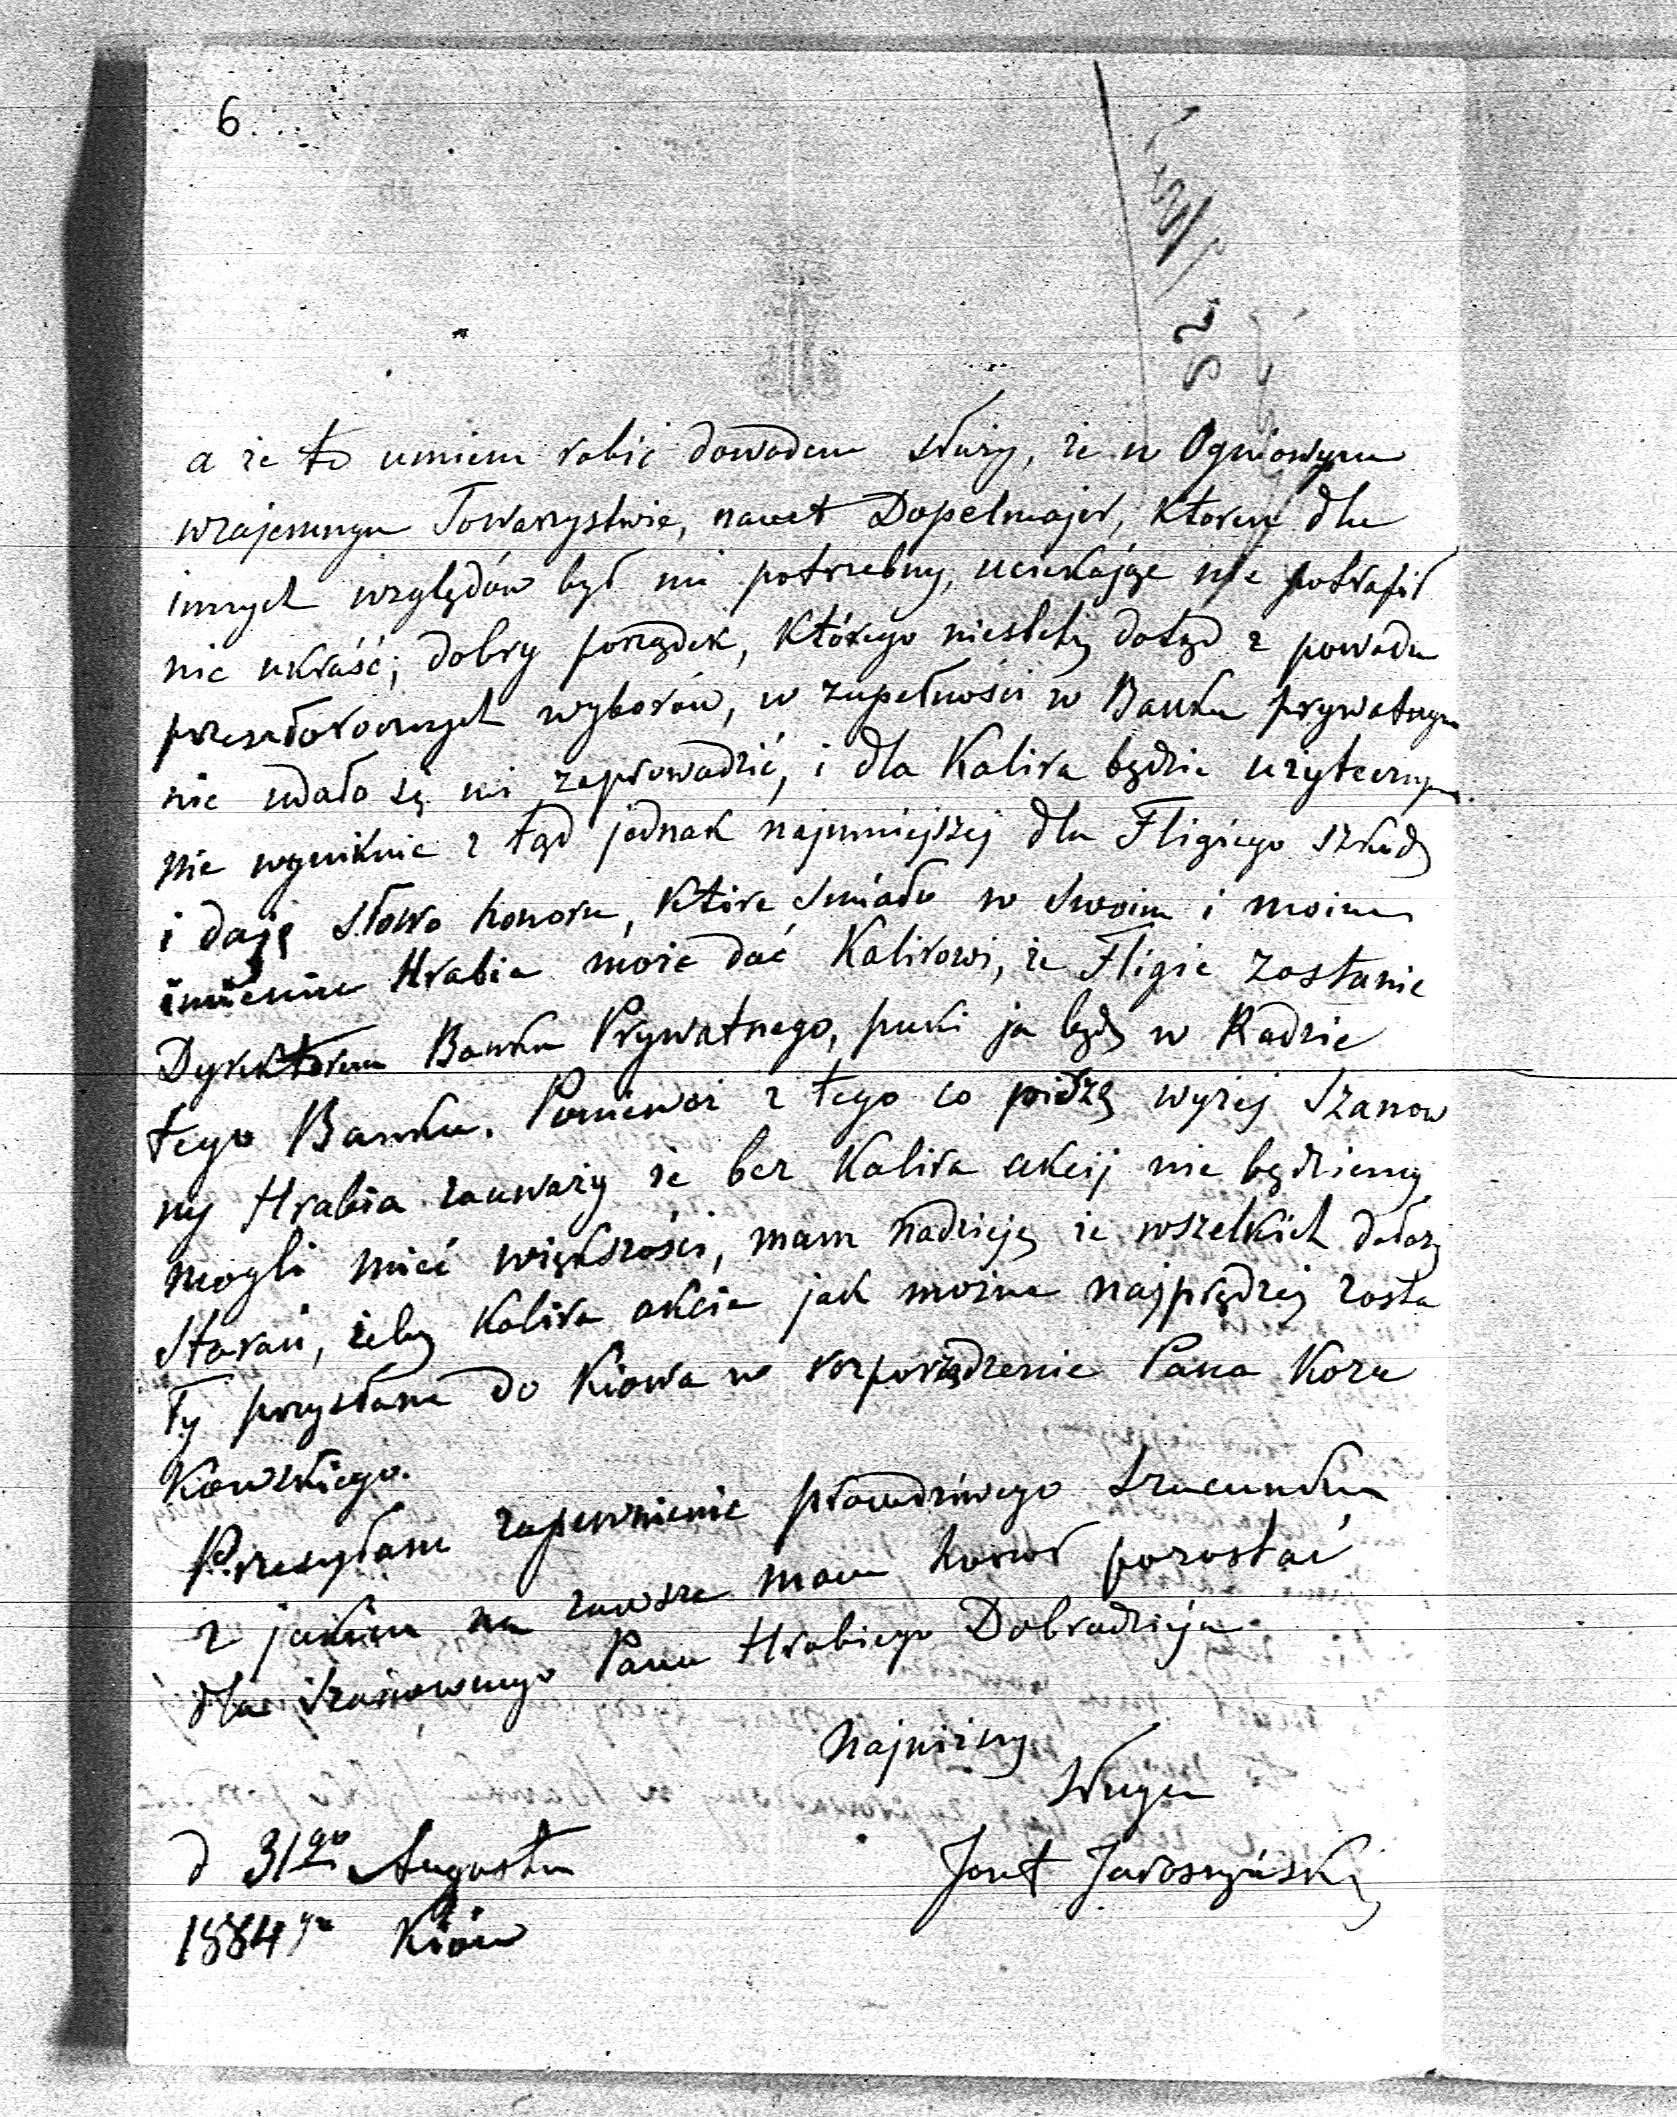 6
a że to umiem robić dowodem służy, że w Ogniowym
wzajemnym Towarzystwie, nawet Dopelmajer, który dla
innych względów był mi potrzebny, uciekając nie potrafił
nic ukraść; dobry porządek, którego niestety dotąd z powodu
przeszłorocznych wyborów, w zupełności w Banku prywatnym
nie udało się mi zaprowadzić, i dla Kalixa będzie użytecznym.
nie wyniknie z tąd jednak najmniejszej dla Fligiego szkody
i daję słowo honoru, które śmiało w swoim i moim
imieniu Hrabia może dać Kalixowi, że Fligie zostanie
Dyrektorem Banku Prywatnego, puki ja będę w Radzie
tego Banku. Ponieważ z tego co piszę wyżej Szanow
ny Hrabia zauważy że bez Kalixa akcij nie będziemy
mogli mieć większości, mam nadzieję że wszelkich dołoży
starań, żeby Kalixa akcie jak można najprędzej zosta
ły przysłane do Kiowa w rozporządzenie Pana Koza
kowskiego.
Przesyłam zapewnienie prawdziwego szacunku
z jakim na zawsze mam honor pozostać
dla Szanownego Pana Hrabiego Dobrodzieja
Najniższy
Sługa
Józef Jaroszyński
d 31go Augusta
1884 Kiów